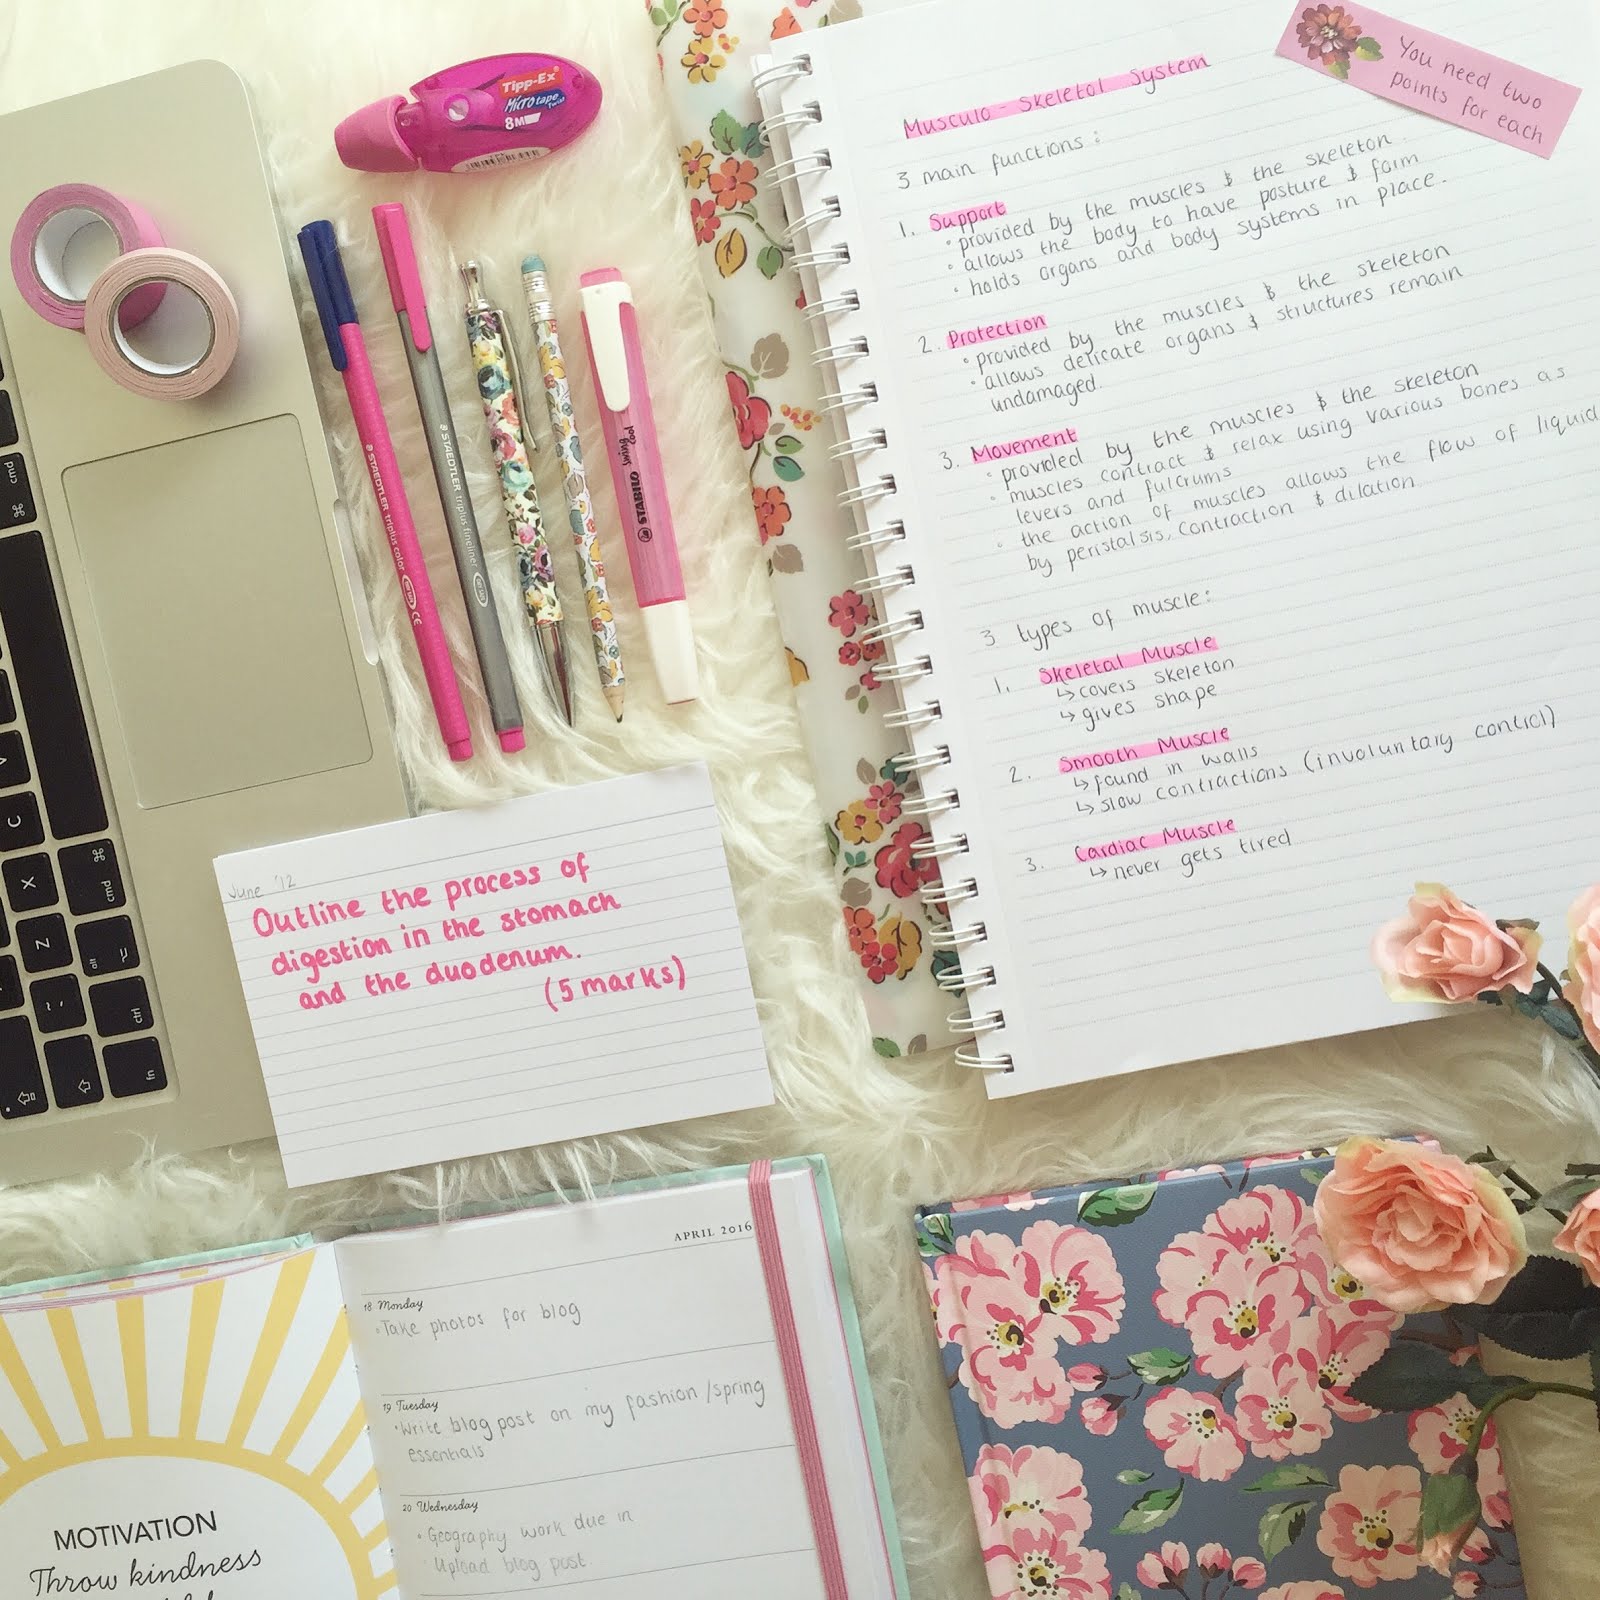 Tipp-Ex
Micro tape
Twist
8M
STAEDTLER triplus color
STAEDTLER triplus fineliner
STABILO
swing cool
cmd
⌘
V
C
X
⌘
cmd
Z
alt
⌥
~
`
ctrl
fn
Musculo-Skeletal System
You need two
points for each
3 main functions:
1. Support
• provided by the muscles & the skeleton.
• allows the body to have posture & form
• holds organs and body systems in place.
2. Protection
• provided by the muscles & the skeleton
• allows delicate organs & structures remain
undamaged.
3. Movement
• provided by the muscles & the skeleton
• muscles contract & relax using various bones as
levers and fulcrums
• the action of muscles allows the flow of liquid
by peristalsis, contraction & dilation
3 types of muscle:
1. Skeletal Muscle
↳ covers skeleton
↳ gives shape
2. Smooth Muscle
↳ found in walls
↳ slow contractions (involuntary control)
3. Cardiac Muscle
↳ never gets tired
June '12
Outline the process of
digestion in the stomach
and the duodenum.
(5 marks)
APRIL 2016
18 Monday
• Take photos for blog
19 Tuesday
• Write blog post on my fashion/spring
essentials
20 Wednesday
• Geography work due in
• Upload blog post.
MOTIVATION
Throw kindness